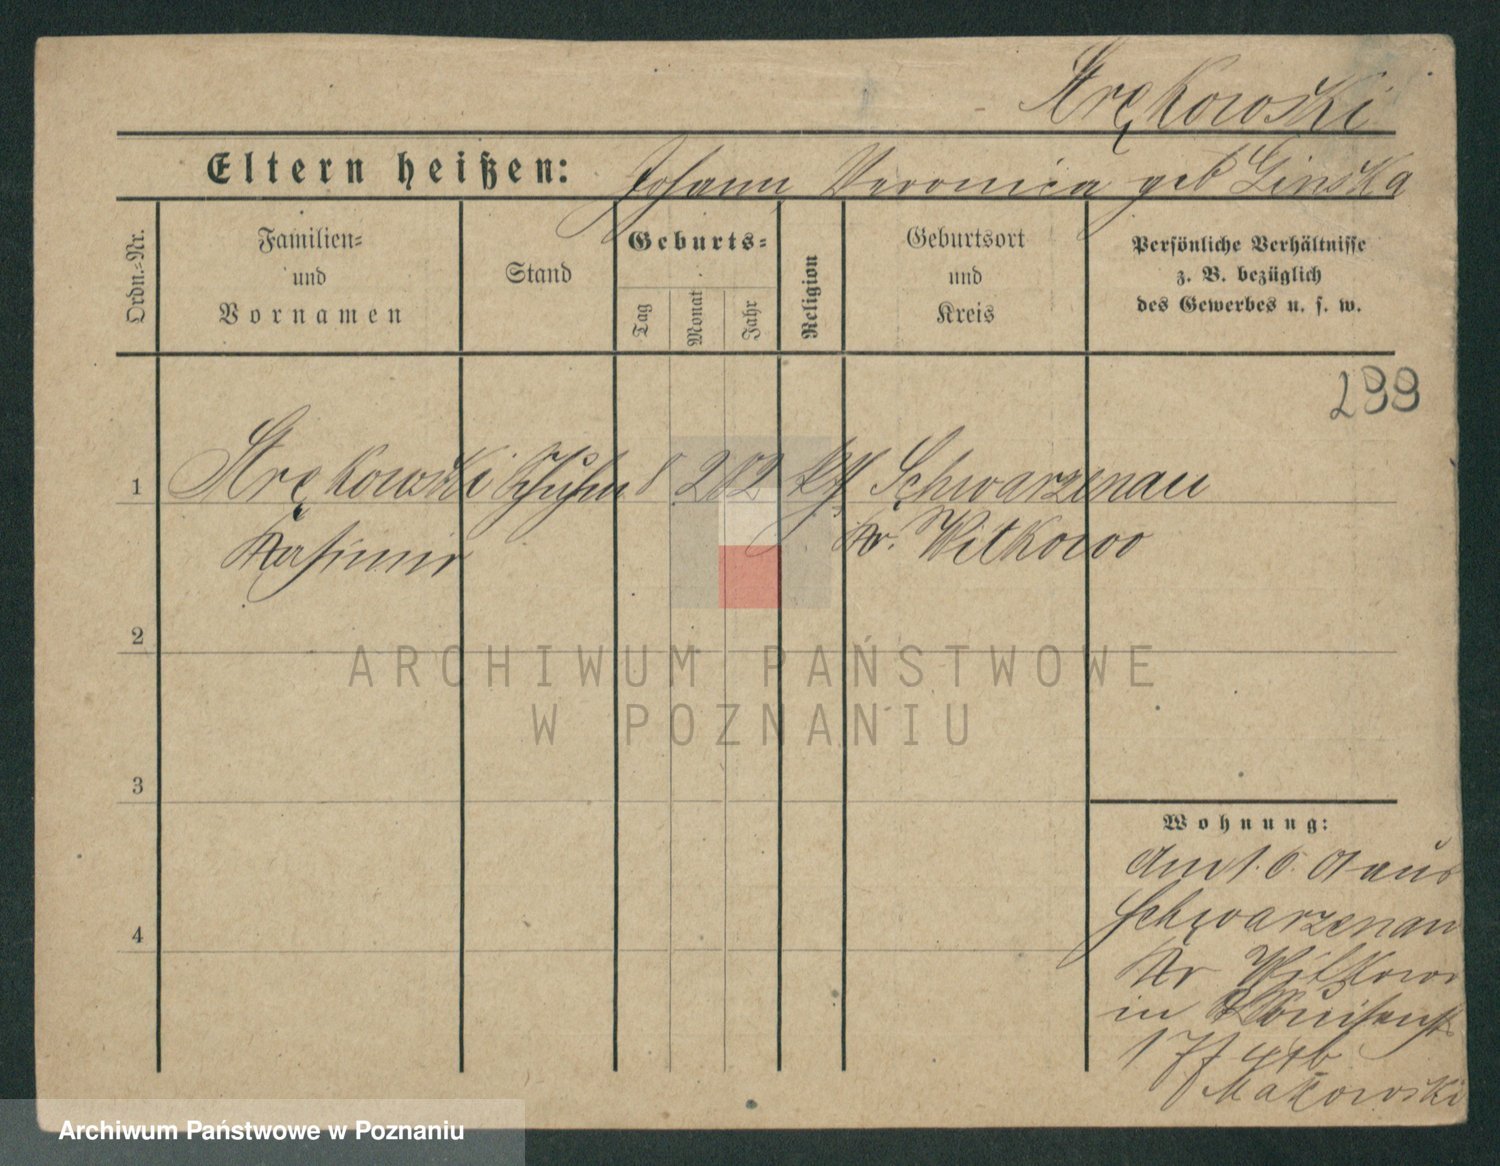 Strękowski
Eltern heißen: Johann Veronica geb Linska
Ordn.-Nr.
Familien-
und
Vornamen
Stand
Geburts-
Tag
Monat
Jahr
Religion
Geburtsort
und
Kreis
Persönliche Verhältnisse
z. B. bezüglich
des Gewerbes u. s. w.
299
1 Strękowski Schuhm 8 2 82 Kth Schwarzenau
Kasimir Kr. Witkowo
2
3
4
Wohnung:
Am 1. 6. 01 aus
Schwarzenau
Kr Witkowo
in Louisenstr
17 f
Makowski
ARCHIWUM PAŃSTWOWE
W POZNANIU
Archiwum Państwowe w Poznaniu